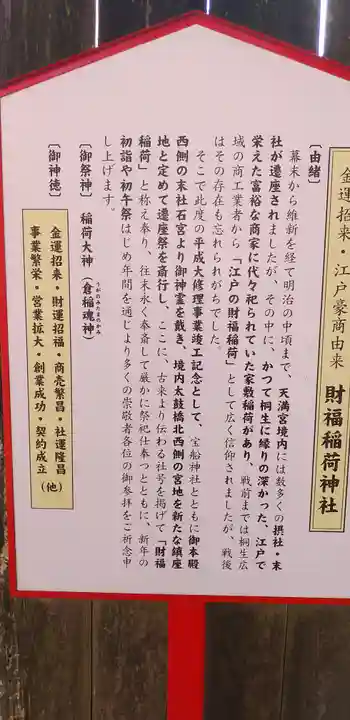 金運招来・江戸豪商由来
財福稲荷神社
〔由緒〕
幕末から維新を経て明治の中頃まで、天満宮境内には数多くの摂社・末
社が遷座されましたが、その中に、かつて桐生に縁りの深かった、江戸で
栄えた富裕な商家に代々祀られていた家敷稲荷があり、戦前までは桐生広
域の商工業者から「江戸の財福稲荷」として広く信仰されましたが、戦後
はその存在も忘れられがちでした。
そこで此度の平成大修理事業竣工記念として、宝船神社とともに御本殿
西側の末社石宮より御神霊を戴き、境内太鼓橋北西側の宮地を新たな鎮座
地と定めて遷座祭を斎行し、ここに、古来より伝わる社号を掲げて「財福
稲荷」と称え奉り、往末永く奉斎して厳かに祭祀仕奉つとともに、新年の
初詣や初午祭はじめ年間を通じより多くの崇敬者各位の御参拝をご祈念申
し上げます。
〔御祭神〕稲荷大神（倉稲魂神）
うがのみたまのかみ
〔御神徳〕
金運招来・財運招福・商売繁昌・社運隆昌
事業繁栄・営業拡大・創業成功・契約成立（他）